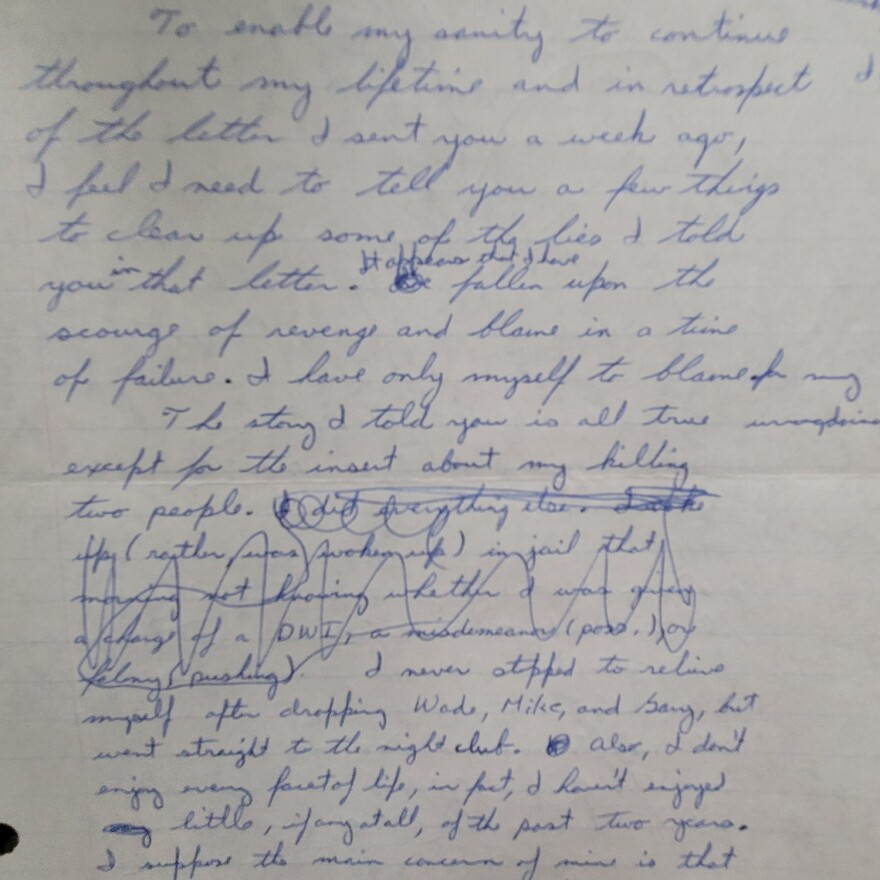 To enable my sanity to continue
throughout my lifetime and in retrospect
of the letter I sent you a week ago,
I feel I need to tell you a few things
to clear up some of the lies I told
It appears that I have
you in that letter. fallen upon the
scourge of revenge and blame in a time
of failure. I have only myself to blame for my
The story I told you is all true wrongdoing
except for the insert about my killing
two people. I did everything else. I woke
up (rather, was woken up) in jail that
morning not knowing whether I was given
a charge of a DWI, a misdemeanor (poss.), or
felony (pushing). I never stpped to relieve
myself after dropping Wade, Mike, and Gary, but
went straight to the night club. Also, I don't
enjoy every facet of life, in fact, I haven't enjoyed
little, if any at all, of the past two years.
I suppose the main concern of mine is that